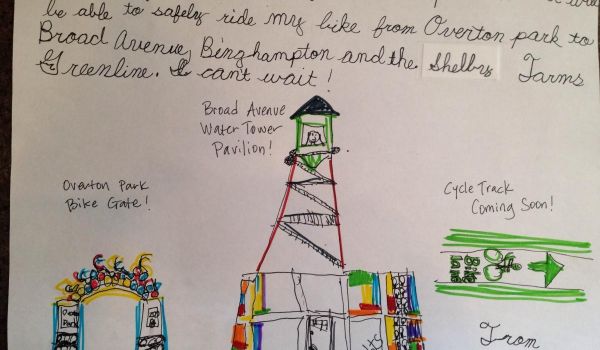 be able to safely ride my bike from Overton park to
Broad Avenue, Binghampton and the Shelby Farms
Greenline. I can't wait!
Broad Avenue
Water Tower
Pavilion!
Overton Park
Bike Gate!
Cycle Track
Coming Soon!
Bike
Lane
Overton
Park
From